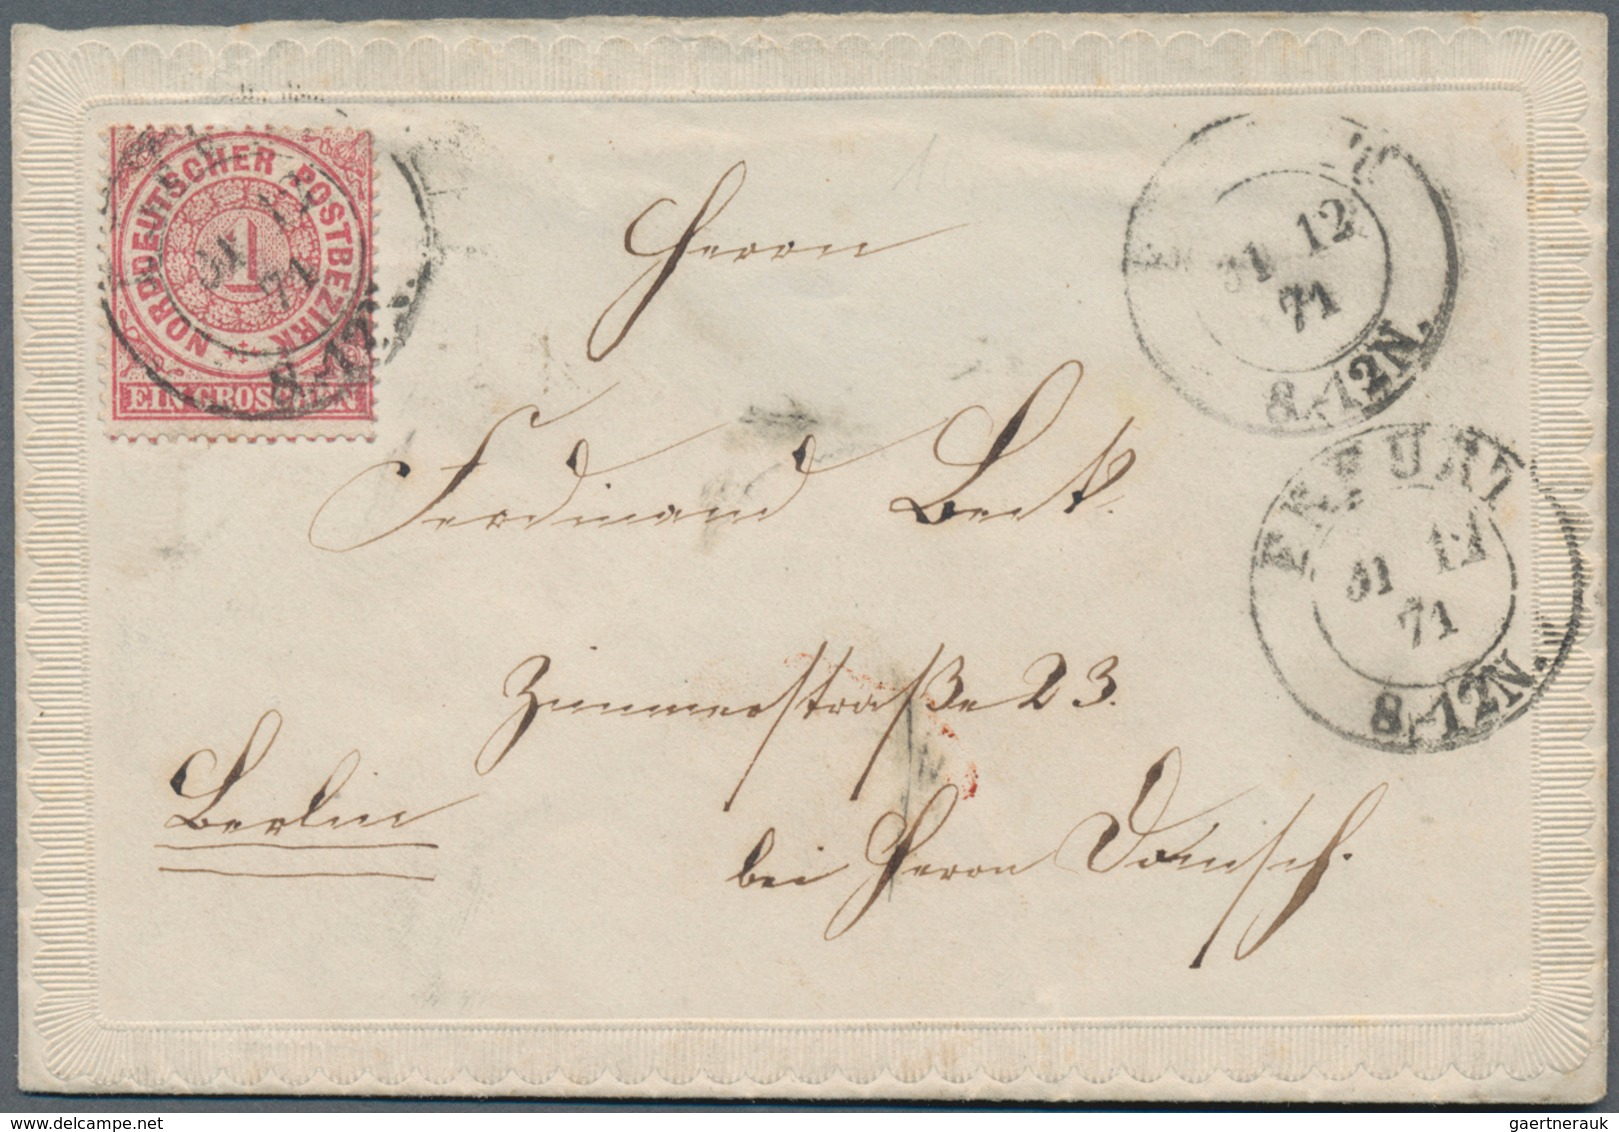 NORDDEUTSCHER POSTBEZIRK
1
EIN GROSCHEN
31 12
71
8-12N.
31 12
71
8-12N.
ERFURT
31 12
71
8-12N.
Herrn
Ferdinand Beck.
Zimmerstraße 23.
Berlin
bei Herrn
gaertnerauk
delcampe.net